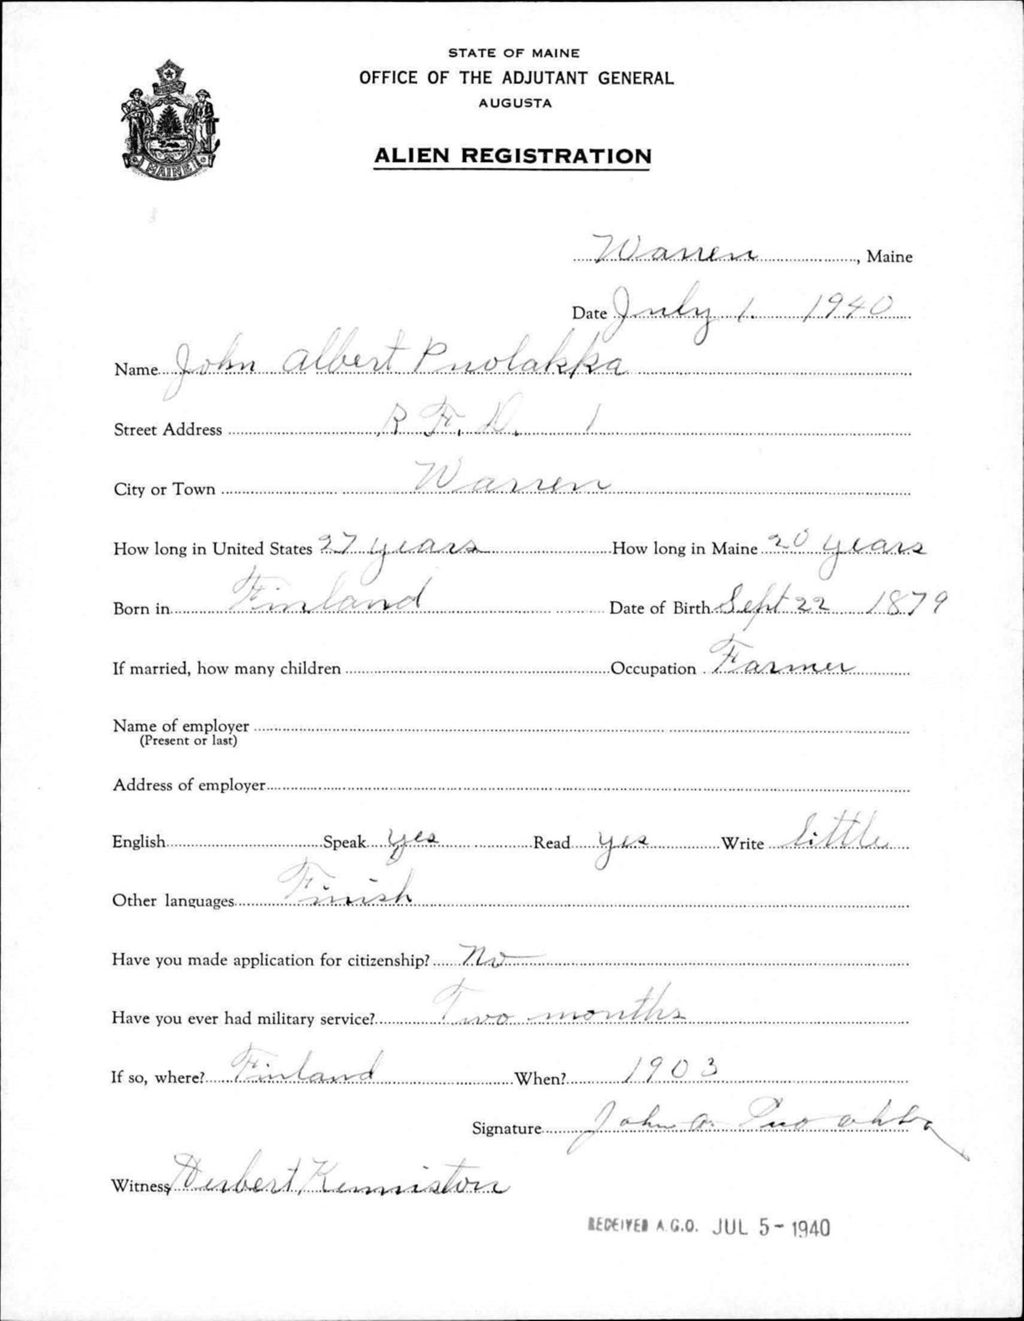 STATE OF MAINE
OFFICE OF THE ADJUTANT GENERAL
AUGUSTA
ALIEN REGISTRATION
MAINE
Warren, Maine
Date July 1. 1940
Name John Albert Puolakka
Street Address R. F. D. 1
City or Town Warren
How long in United States 27 years How long in Maine 20 years
Born in Finland Date of Birth Sept 22 1879
If married, how many children Occupation Farmer
Name of employer
(Present or last)
Address of employer
English Speak yes Read yes Write little
Other languages Finish
Have you made application for citizenship? No
Have you ever had military service? Two months
If so, where? Finland When? 1903
Signature John A. Puolakka
Witness Herbert Kenniston
RECEIVED A.G.O. JUL 5-1940